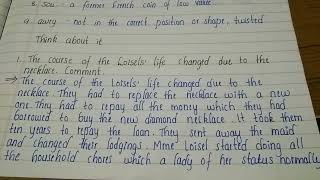 8. sou - a former french coin of low value
a awry - not in the correct position or shape, twisted
Think about it
1. The course of the Loisels' life changed due to the
necklace. Comment.
⇒ The course of the Loisels' life changed due to the
necklace. They had to replace the necklace with a new
one. They had to repay all the money which they had
borrowed to buy the new damond necklace. It took them
ten years to repay the loan. They sent away the maid
and changed their lodgings. Mme Loisel started doing all
the household chores which a lady of her status normally